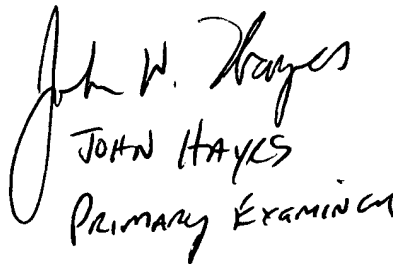 John W. Hayes
JOHN HAYES
PRIMARY EXAMINER